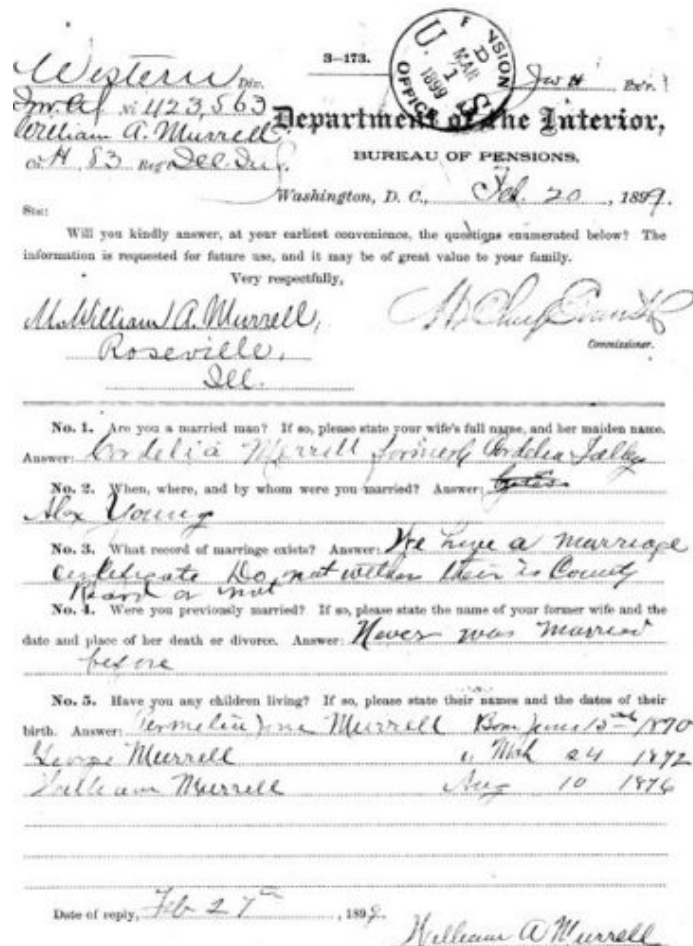 3—173.
Western Div.
U. S. PENSION OFFICE MAR 1 1899
Ex'r.
No. 423,563
William A. Murrell
Department of the Interior,
Co. H 83 Reg't Ill. Inf.
BUREAU OF PENSIONS,
Washington, D. C., Feb. 20, 1899.
SIR:
Will you kindly answer, at your earliest convenience, the questions enumerated below? The
information is requested for future use, and it may be of great value to your family.
Very respectfully,
Mr. William A. Murrell,
Roseville,
Commissioner.
Ill.
No. 1. Are you a married man? If so, please state your wife's full name, and her maiden name.
Answer: Cordelia Murrell formerly Cordelia Talley
No. 2. When, where, and by whom were you married? Answer:
Alex Young
No. 3. What record of marriage exists? Answer: We have a marriage
certificate Do not wether their is County
Record or not
No. 4. Were you previously married? If so, please state the name of your former wife and the
date and place of her death or divorce. Answer: Never was married
before
No. 5. Have you any children living? If so, please state their names and the dates of their
birth. Answer: Murrell Born June 1870
George Murrell " Mch 24 1872
William Murrell Aug 10 1876
Date of reply, Feb 27th, 1899.
William A Murrell